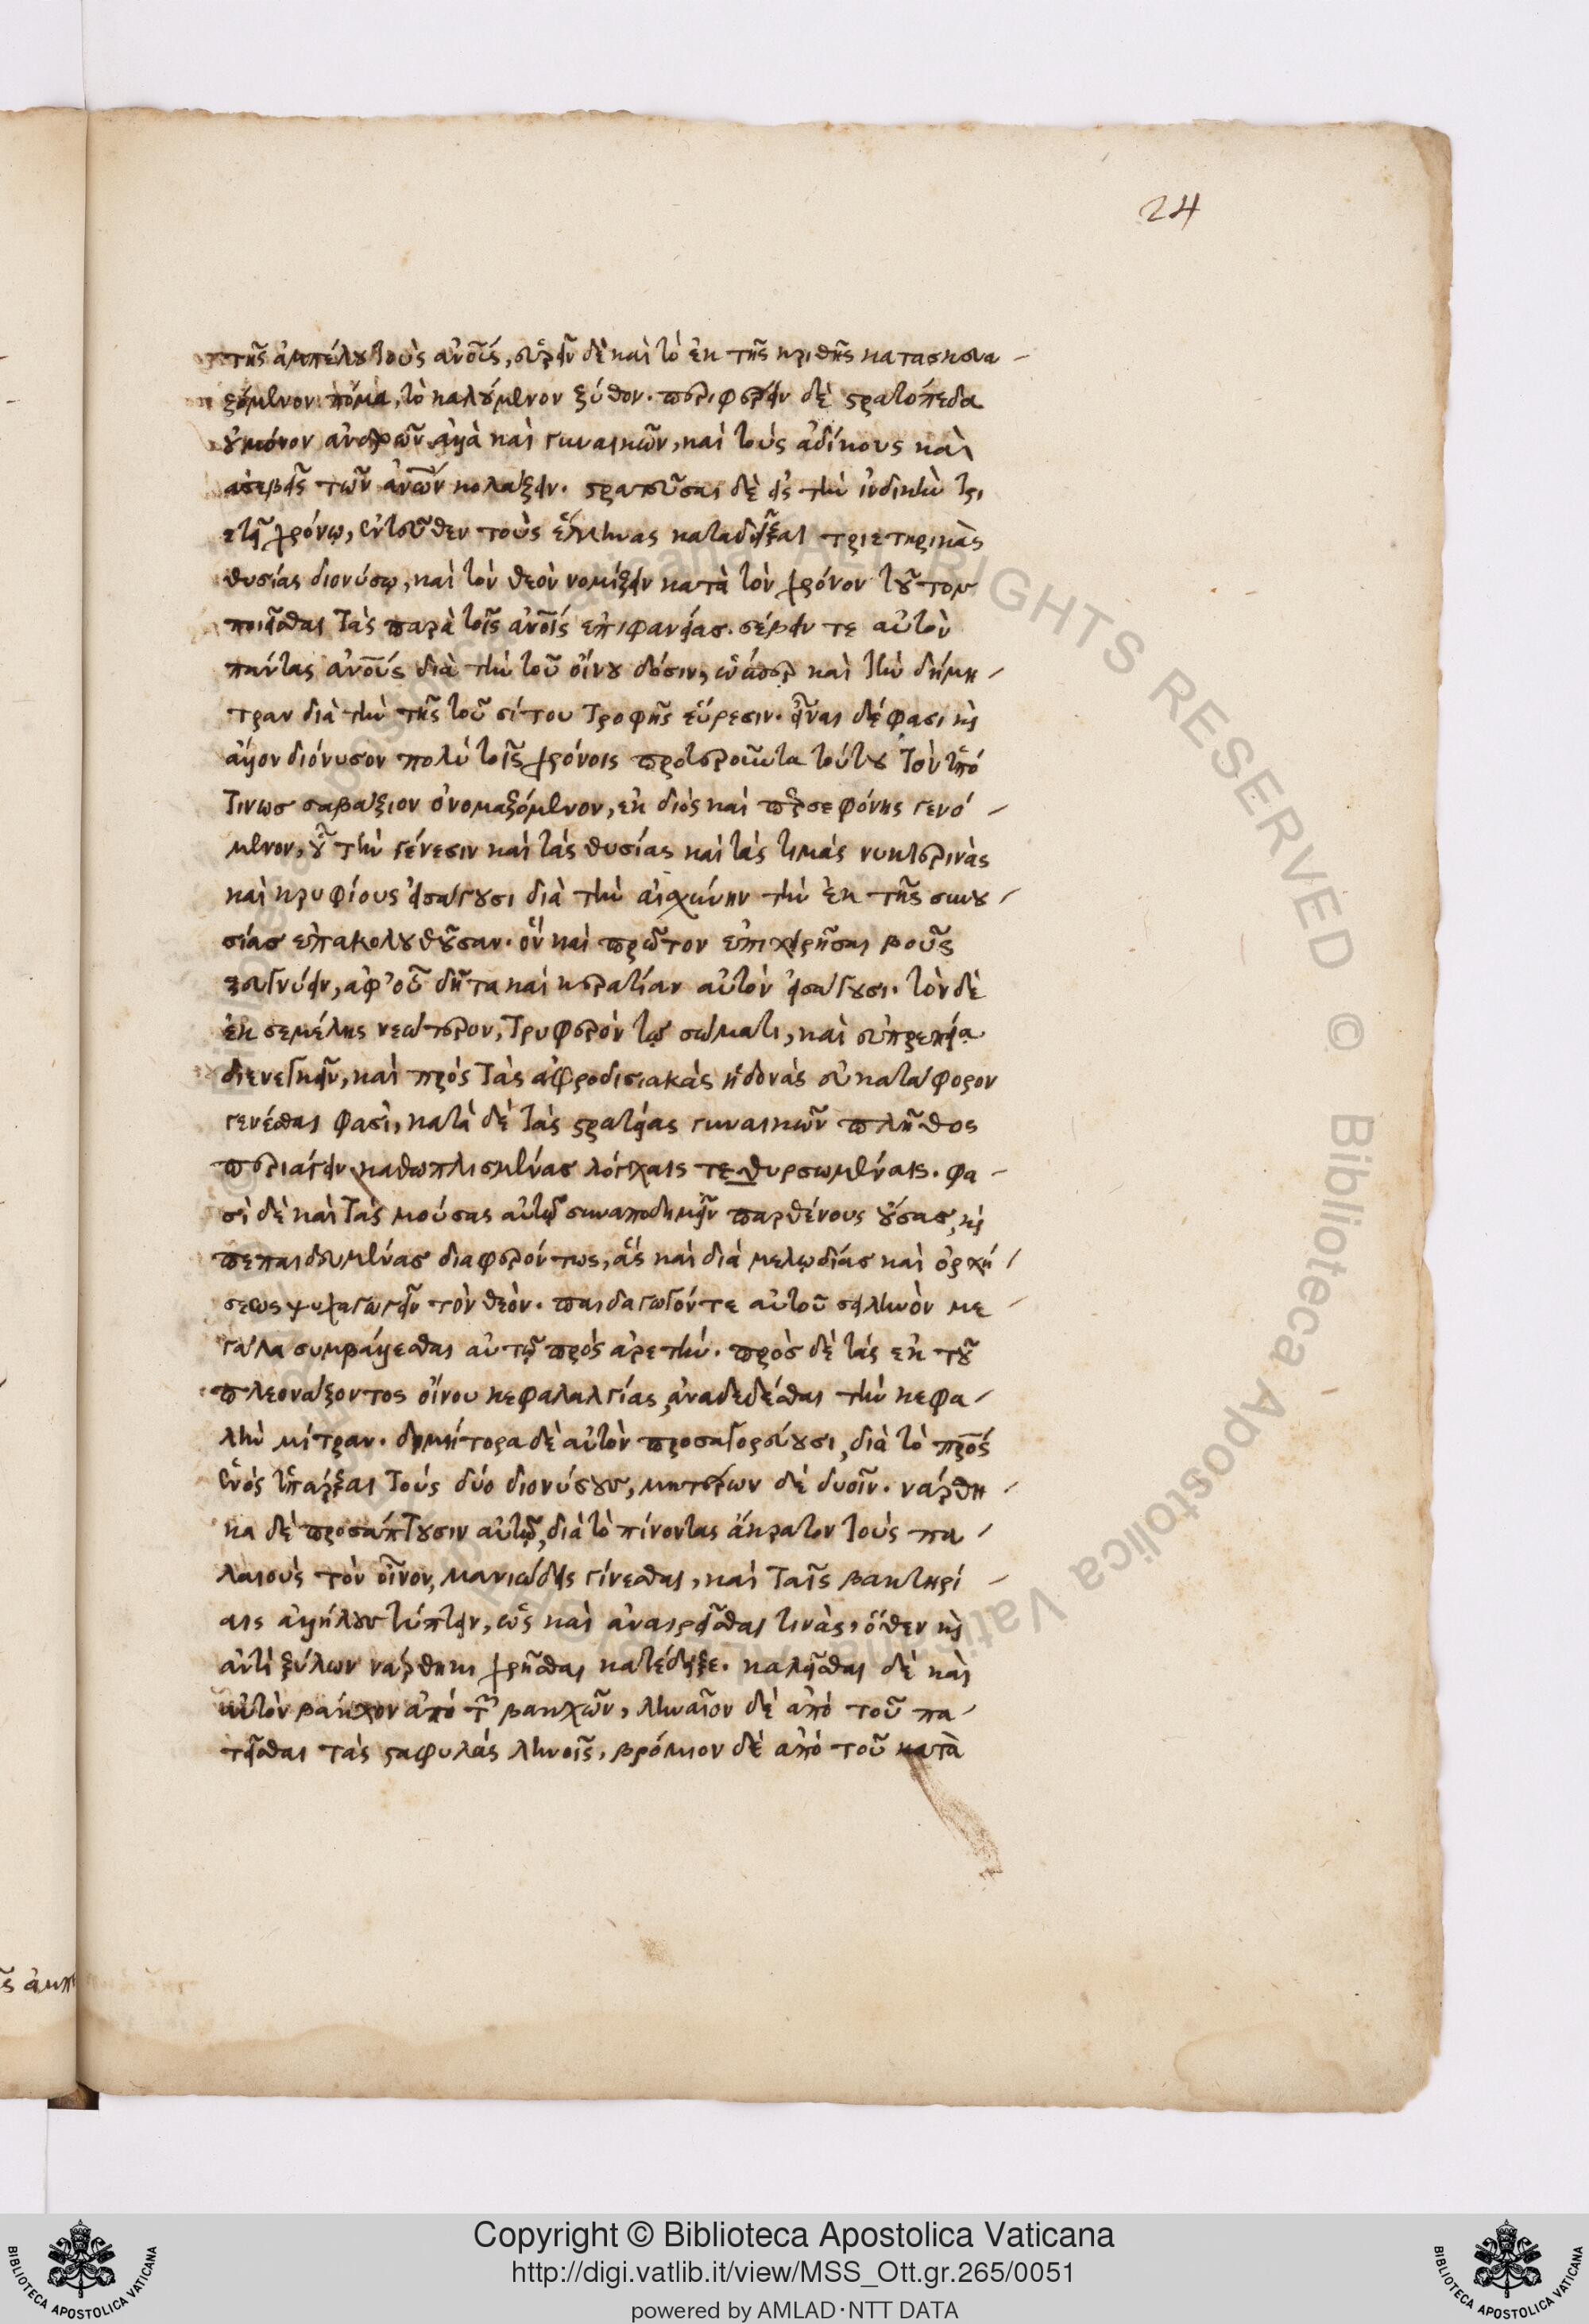 24
τῆς ἀμπέλου τοὺς ἀνο̅υς, εὑρεῖν δὲ καὶ τὸ ἐκ τῆς κριθῆς κατασκευα
ζόμενον πόμα, τὸ καλούμενον ζύθον. περιφέρειν δὲ στρατόπεδα
οὐ μόνον ἀνδρῶν ἀλλὰ καὶ γυναικῶν, καὶ τοὺς ἀδίκους καὶ
ἀσεβεῖς τῶν ἀνω̅ν κολάζειν. στρατεῦσαι δὲ εἰς τὴν ἰνδικὴν τρι
ετεῖ χρόνῳ, ἐντεῦθεν τοὺς ἕλληνας καταδεῖξαι τριετηρικὰς
θυσίας διονύσῳ, καὶ τὸν θεὸν νομίζειν κατὰ τὸν χρόνον τοῦτον
ποιεῖσθαι τὰς παρὰ τοῖς ἀνο̅ις ἐπιφανείας. σέβειν τε αὐτὸν
πάντας ἀνο̅υς διὰ τὴν τοῦ οἴνου δόσιν, ὥσπερ καὶ τὴν δήμη
τραν διὰ τὴν τῆς τοῦ σίτου τροφῆς εὕρεσιν. εἶναι δέ φασι καὶ
ἄλλον διόνυσον πολὺ τοῖς χρόνοις προτεροῦντα τούτου τὸν ὑπό
τινων σαβάζιον ὀνομαζόμενον, ἐκ διὸς καὶ περσεφόνης γενό
μενον, οὗ τὴν γένεσιν καὶ τὰς θυσίας καὶ τὰς τιμὰς νυκτερινὰς
καὶ κρυφίους εἰσάγουσι διὰ τὴν αἰσχύνην τὴν ἐκ τῆς συνου
σίας ἐπακολουθοῦσαν. ὃν καὶ πρῶτον ἐπιχειρῆσαι βοῦς
ζευγνύειν, ἀφ' οὗ δῆτα καὶ κερατίαν αὐτὸν εἰσάγουσι. τὸν δὲ
ἐκ σεμέλης νεώτερον, τρυφερὸν τῷ σώματι, καὶ εὐπρεπείᾳ
διενεγκεῖν, καὶ πρὸς τὰς ἀφροδισιακὰς ἡδονὰς εὐκατάφορον
γενέσθαι φασὶ, κατὰ δὲ τὰς στρατείας γυναικῶν πλῆθος
περιάγειν καθωπλισμένας λόγχαις τεθυρσωμέναις. φα
σὶ δὲ καὶ τὰς μούσας αὐτῷ συναποδημεῖν παρθένους οὔσας, καὶ
πεπαιδευμένας διαφερόντως, ἃς καὶ διὰ μελῳδίας καὶ ὀρχή
σεως ψυχαγωγεῖν τὸν θεόν. παιδαγωγόν τε αὐτοῦ σειληνὸν με
γάλα συμβάλλεσθαι αὐτῷ πρὸς ἀρετήν. πρὸς δὲ τὰς ἐκ τοῦ
πλεονάζοντος οἴνου κεφαλαλγίας, ἀναδεδέσθαι τὴν κεφα
λὴν μίτραν. διμήτορα δὲ αὐτὸν προσαγορεύουσι, διὰ τὸ π̅ρο̅ς
ἑνὸς ὑπάρξαι τοὺς δύο διονύσους, μητέρων δὲ δυοῖν. νάρθη
κα δὲ προσάπτουσιν αὐτῷ, διὰ τὸ πίνοντας ἄκρατον τοὺς πα
λαιοὺς τὸν οἶνον, μανιώδεις γίνεσθαι, καὶ ταῖς βακτηρί
αις ἀλλήλους τύπτειν, ὡς καὶ ἀναιρεῖσθαι τινάς, ὅθεν καὶ
ἀντὶ ξύλων νάρθηκι χρῆσθαι κατέδειξε. καλεῖσθαι δὲ καὶ
αὐτὸν βάκχον ἀπὸ τῶν βακχῶν, ληναῖον δὲ ἀπὸ τοῦ πα
τεῖσθαι τὰς σταφυλὰς ληνοῖς, βρόμιον δὲ ἀπὸ τοῦ κατὰ
Copyright © Biblioteca Apostolica Vaticana
http://digi.vatlib.it/view/MSS_Ott.gr.265/0051
powered by AMLAD·NTT DATA
BIBLIOTECA APOSTOLICA VATICANA
BIBLIOTECA APOSTOLICA VATICANA